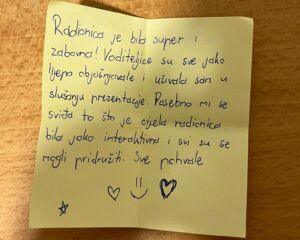 Radionica je bila super i
zabavna! Voditeljice su sve jako
lijepo objašnjavale i uživala sam u
slušanju prezentacije. Posebno mi se
sviđa to što je cijela radionica
bila jako interaktivna i svi su se
mogli pridružiti. Sve pohvale